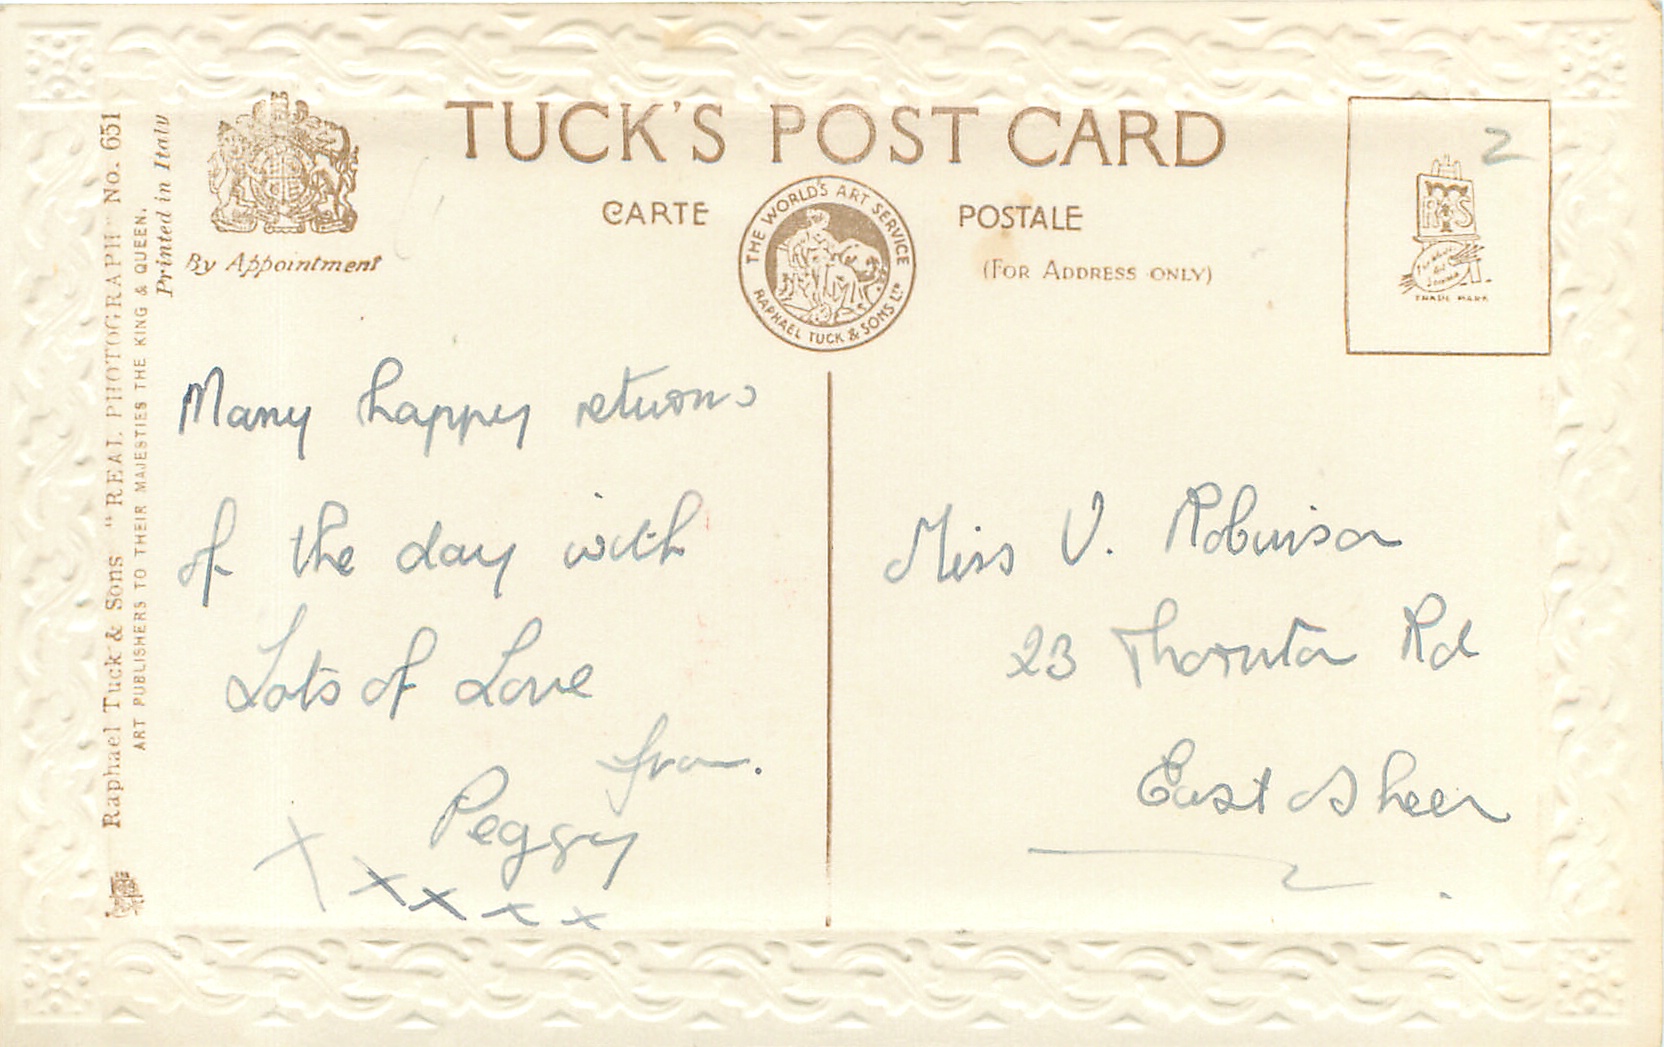 TUCK'S POST CARD
CARTE POSTALE
(FOR ADDRESS ONLY)
By Appointment
THE WORLD'S ART SERVICE
RAPHAEL TUCK & SONS LTD
Raphael Tuck & Sons "REAL PHOTOGRAPH" No. 651
ART PUBLISHERS TO THEIR MAJESTIES THE KING & QUEEN.
Printed in Italy
2
RTS
TRADE MARK
Many happy returns
of the day with
Lots of Love
from.
Peggy
x x x x x
Miss V. Robinson
23 Thornton Rd
East Sheen